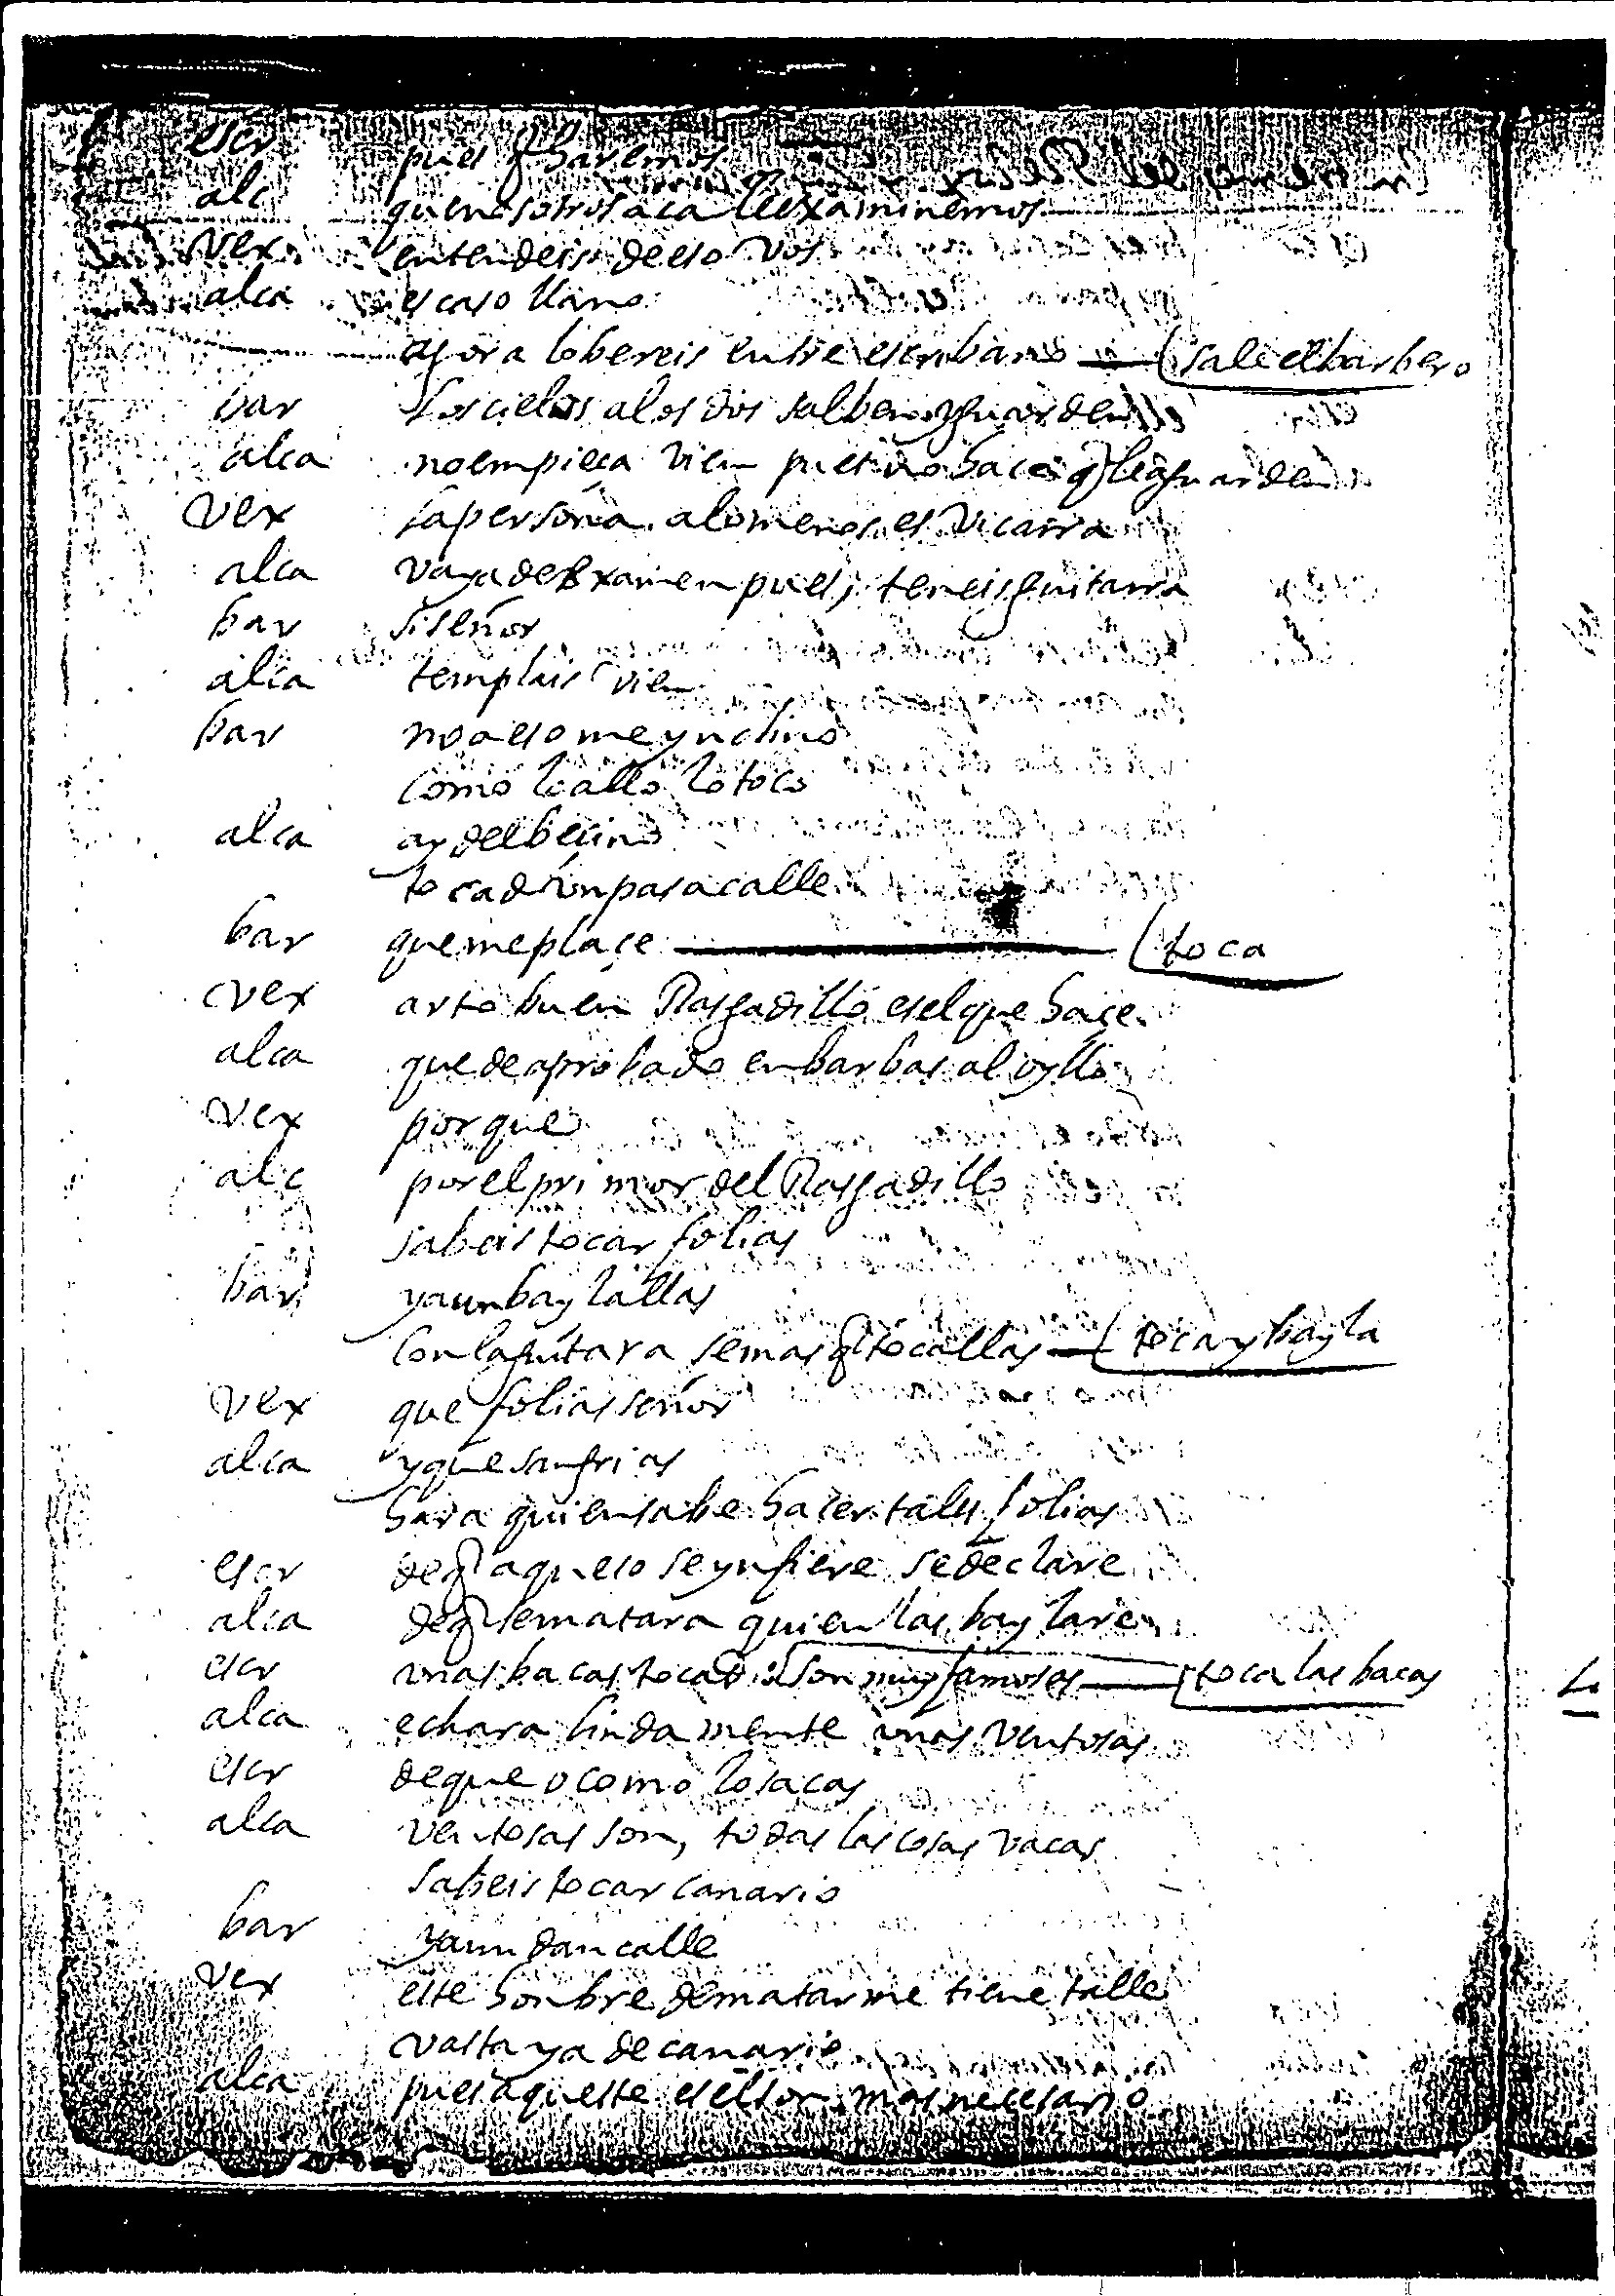 escr pues q̃ haremos
alc que nosotros aca le examinemos
vex entendeis de eso vos
alca es caso llano
agora lo bereis entre escribano — sale el barbero
bar los cielos a los dos salben y guarden
alca no empieça vien pues no hace q̃ le aguarden
vex la persona a lo menos es vicarra
alca vaya de examen pues, teneis guitarra
bar si señor
alca templais vien
bar no a eso me ynclino
como lo allo lo toco
alca ay del becino
tocad un pasacalle
bar que me plaçe — toca
vex arto buen Rasgadillo es el que haçe
alca quede aprobado en barbas al oyllo
vex por que
alc por el primor del Rasgadillo
sabeis tocar folias
bar y aun bayllallas
con la guitara se mas q̃ tocallas — toca y bayla
vex que folias señor
alca y que sangrias
hara quien sabe hacer tales folias
escr de q̃ aqueso se ynfiere se declare
alca de q̃ se matara quien las baylare
escr unas bacas tocad son muy famosas — toca las bacas
alca echara lindamente unas ventosas
escr de que o como lo sacas
alca ventosas son, todas las cosas vacas
sabeis tocar canario
bar y aun dancalle
vex este honbre de matarme tiene talle
vasta ya de canario
alca pues aqueste es el son mas necesario